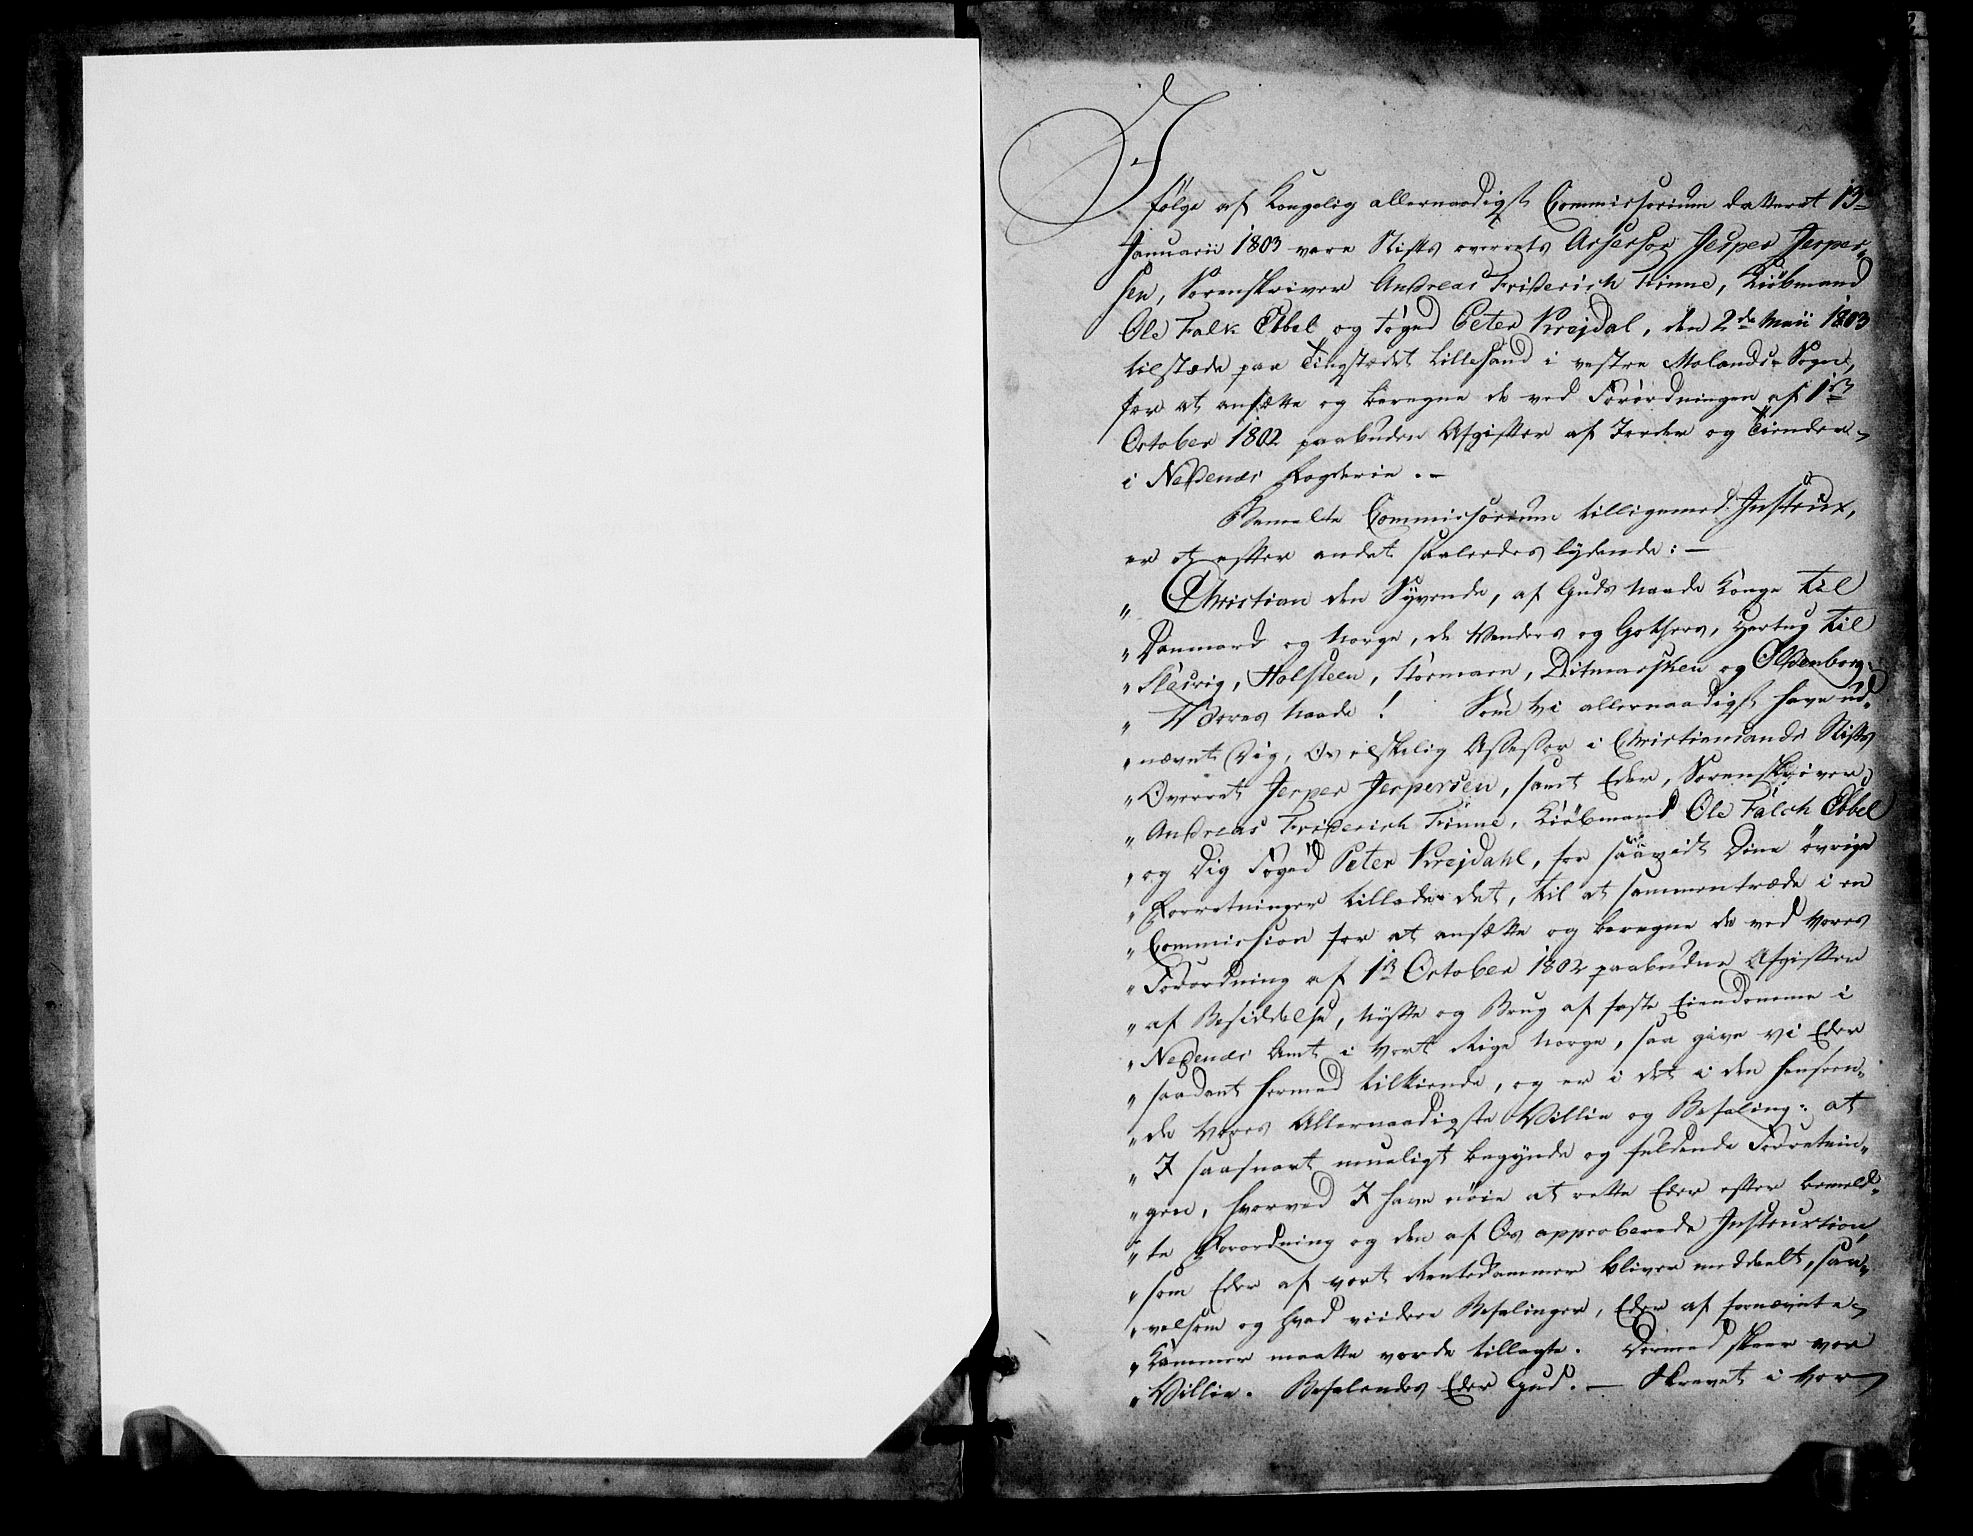 I
følge af Kongelig allernaadigst Commissorium datteret 13de
Januarii 1803 vare Stifts overrets Assessor Jesper Jesper-
sen, Sorenskriver Andreas Friderich Finne, Kiöbmand
Ole Falk Ebbel og Foged Peter Krejdal, den 2de Maii 1803
tilstæde paa Tingstedet Lillesand i vestre Molands Sogn,
for at ansætte og beregne de ved Forordningen af 1ste
October 1802 paabudne Afgifter af Jorder og Tiender
i Nedenes Fogderie. -
Bemelte Commissorium tilligemed Instrux,
er et efter andet saaledes lydende: -
" Christian den Syvende, af Guds Naade Konge til
" Danmark og Norge, de Venders og Gothers, Hertug til
" Slesvig, Holsteen, Stormarn, Ditmarsken og Oldenborg.
" Vores Naade! Som Vi allernaadigst have ud-
" nævnt Dig, Os elskelig Assessor i Christiansands Stifts
" Overret Jesper Jespersen, samt Eder, Sorenskriver
" Andreas Friderich Finne, Kiöbmand Ole Falch Ebbel
" og Dig Foged Peter Krejdahl, for saavidt Dine övrige
" Forretninger tillader det, til at sammentræde i en
" Commission for at ansætte og beregne de ved Vores
" Forordning af 1ste October 1802 paabudne Afgifter
" af Besiddelse, Nytte og Brug af faste Eiendomme i
" Nedenes Amt i Vort Rige Norge, saa give Vi Eder
" saadant hermed tilkiende, og er i det i den henseen-
" de Vores Allernaadigste Villie og Befaling: at
" I saasnart mueligt begynde og fuldende Forretnin-
" gen, hvorved I have nöie at rette Eder efter bemeld-
" te Forordning og den af Os approberede Instruction,
" som Eder af vort Rentekammer bliver meddeelt, saa-
" velsom og hvad viidere Befalinger, Eder af fornævnte
" Kammer maatte vorde tillagte. Dermed skeer vor
" Villie. Befalendes Eder Gud. - Skrevet i vor